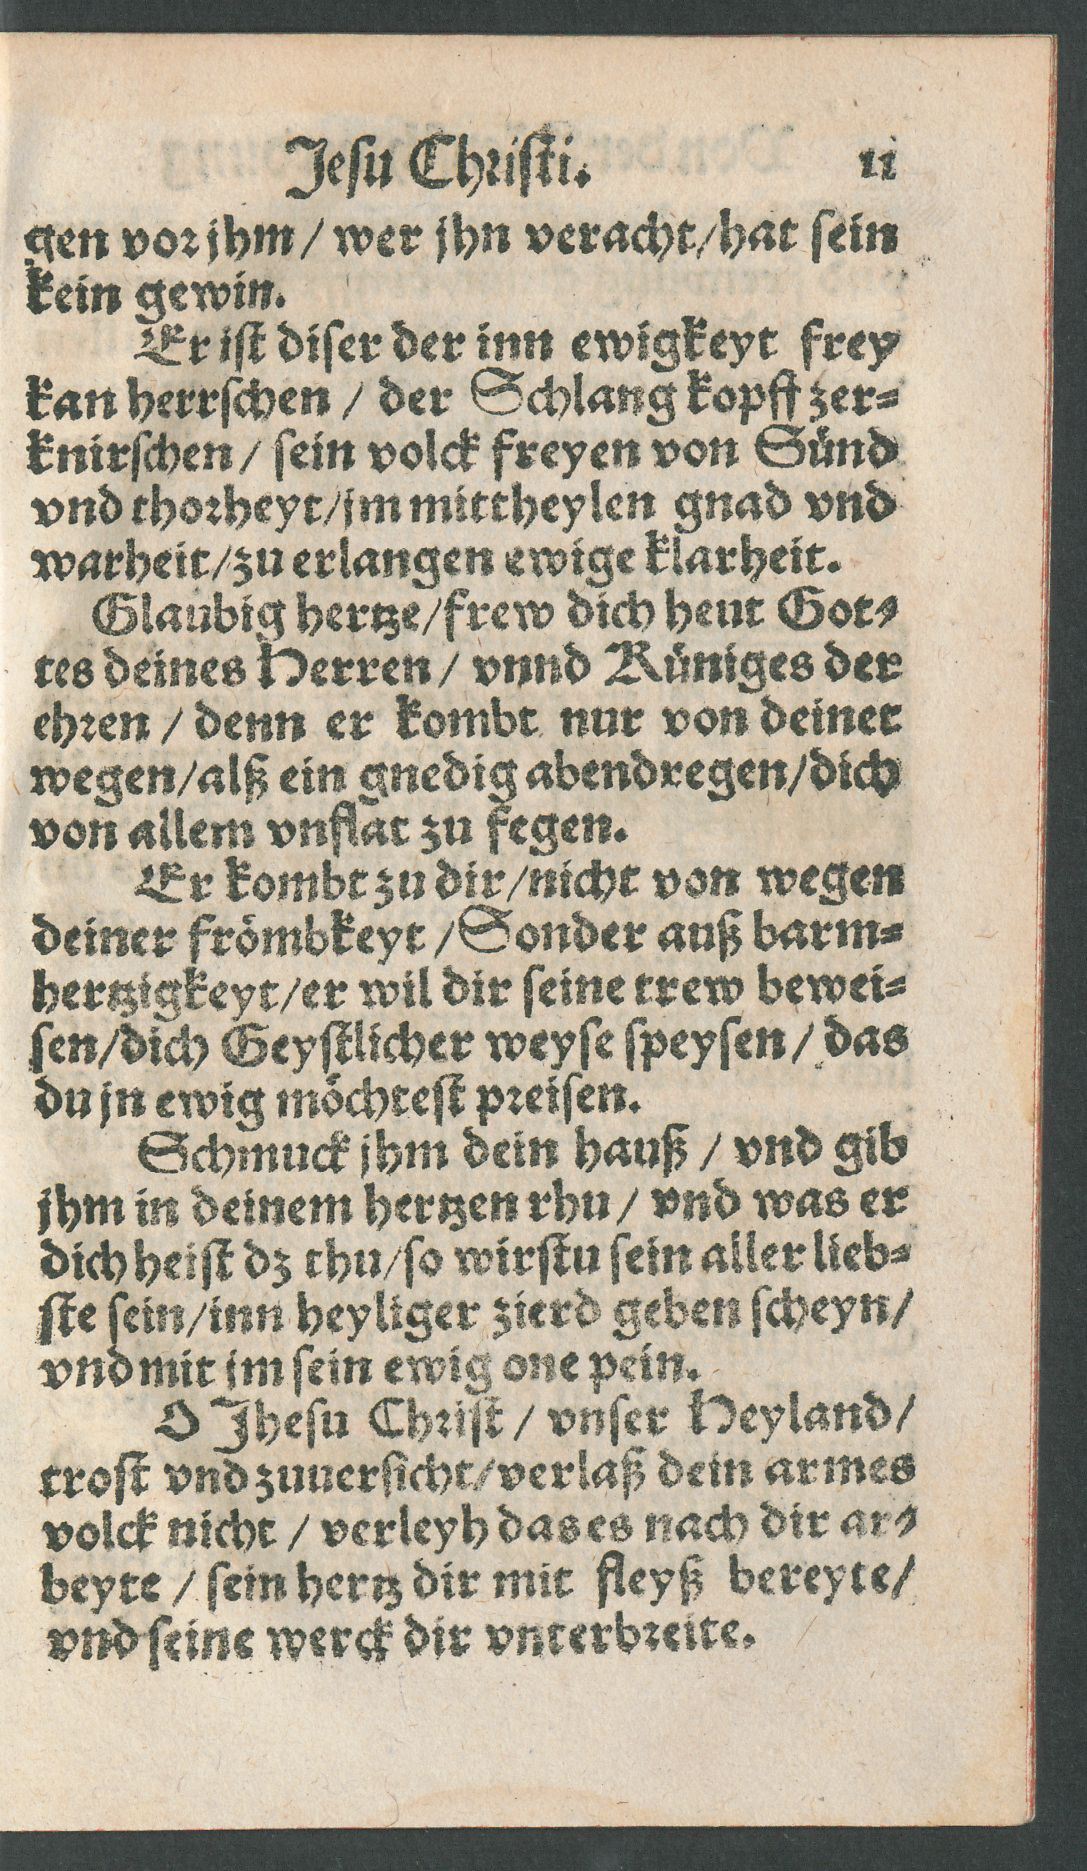 Jesu Christi. 11
gen vor jhm / wer jhn veracht / hat sein
kein gewin.
Er ist diser der inn ewigkeyt frey
kan herrschen / der Schlang kopff zer-
knirschen / sein volck freyen von Sünd
vnd thorheyt / jm mittheylen gnad vnd
warheit / zu erlangen ewige klarheit.
Glaubig hertze / frew dich heut Got-
tes deines Herren / vnnd Küniges der
ehren / denn er kombt nur von deinet
wegen / alß ein gnedig abendregen / dich
von allem vnflat zu fegen.
Er kombt zu dir / nicht von wegen
deiner frömbkeyt / Sonder auß barm-
hertzigkeyt / er wil dir seine trew bewei-
sen / dich Geystlicher weyse speysen / das
du jn ewig möchtest preisen.
Schmuck jhm dein hauß / vnd gib
jhm in deinem hertzen rhu / vnd was er
dich heist dz thu / so wirstu sein aller lieb-
ste sein / inn heyliger zierd geben scheyn /
vnd mit jm sein ewig one pein.
O Jhesu Christ / vnser Heyland /
trost vnd zuuersicht / verlaß dein armes
volck nicht / verleyh das es nach dir ar-
beyte / sein hertz dir mit fleyß bereyte /
vnd seine werck dir vnterbreite.